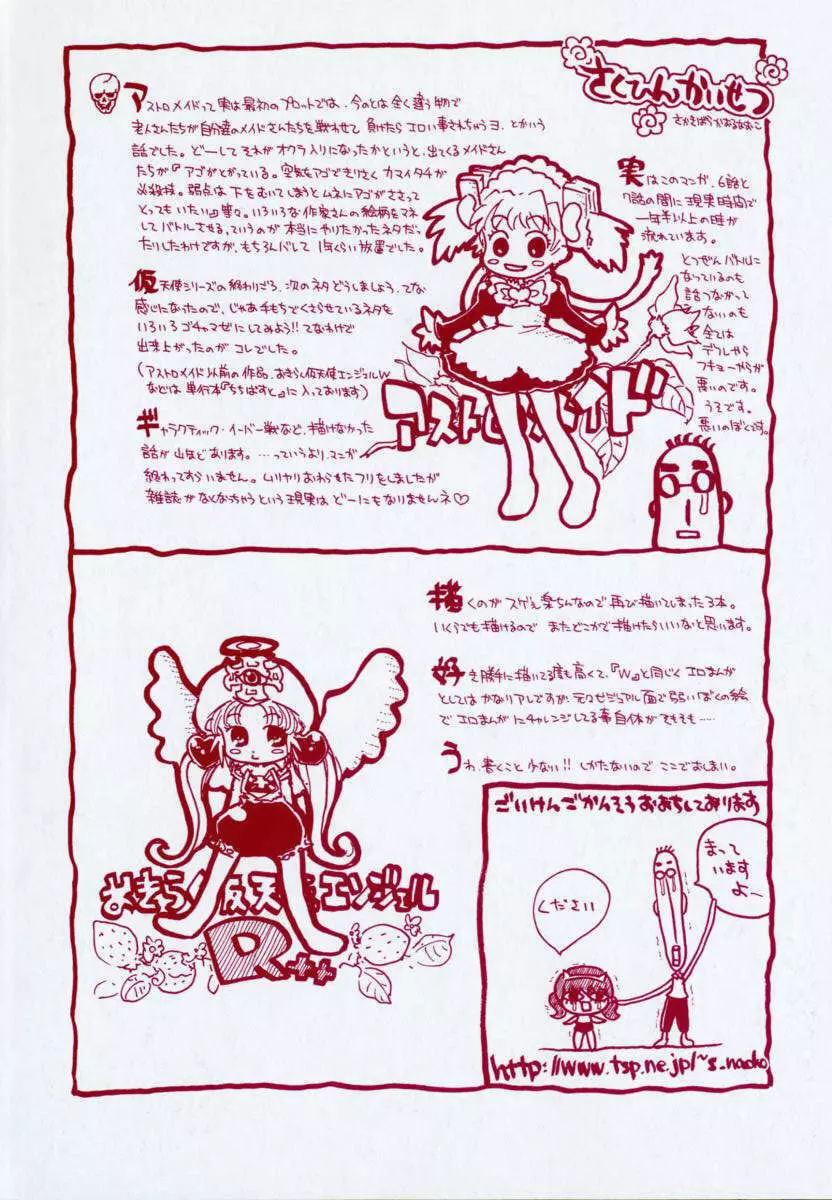 さくひんかいせつ
さかきばらかおるなおこ
アストロメイドって実は最初のプロットでは、今のとは全く違う物で
老人さんたちが自分達のメイドさんたちを戦わせて 負けたら エロい事されちゃうヨ、とかいう
話でした。どーしてそれが オクラ入りになったかというと、出てくるメイドさん
たちが『アゴがとがっている。空気をアゴできりさく カマイタチが
必殺技。弱点は 下をむいてしまうと ムネにアゴがささって
とってもいたい』等々。いろいろな作家さんの絵柄をマネ
してバトルさせる、ていうのが 本当にやりたかったネタだっ
たりしたわけですが、もちろんバレして 1年くらい放置でした。
仮天使シリーズの終わりごろ、次のネタ どうしましょう、てな
感じになったので、じゃあ手もちでくさらせているネタを
いろいろ ゴチャマゼに してみよう!! てなわけで
出来上がったのが コレでした。
(アストロメイド以前の作品、あきらし仮天使エンジェルW
などは 単行本『ちちぱすと』に入っております)
ギャラクティック・イーバー戦など、描けなかった
話が山ほどあります。…っていうより、マンガ
終わってすらいません。ムリヤリおわらせたフリをしましたが
雑誌がなくなっちゃうという現実は どーにもなりませんネ♡
実はこのマンガ、6話と
7話の間に現実時間で
一年半以上の時が
流れています。
とつぜんバトルに
なっているのも
話つながって
ないのも
全ては
デフレやら
フキョーやらが
悪いのです。
うそです。
悪いのぼくです。
アストロメイド
描くのが スゲェ楽ちんなので 再び描いてしまった3本。
いくらでも描けるので またどこかで描けたらいいなと思います。
好き勝手に描いてる度も高くて、『W』と同じく エロまんが
としては かなりアレですが、元々ビジュアル面で弱いぼくの絵
で エロまんがにチャレンジしてる事自体がそもそも……
うわ、書くこと 少ない!! しかたないので ここでおしまい。
あきらし仮天使エンジェル
R++
ごいけんごかんそうおまちしております
まって
いますよ〜
ください
http://www.tsp.ne.jp/~s_naoko